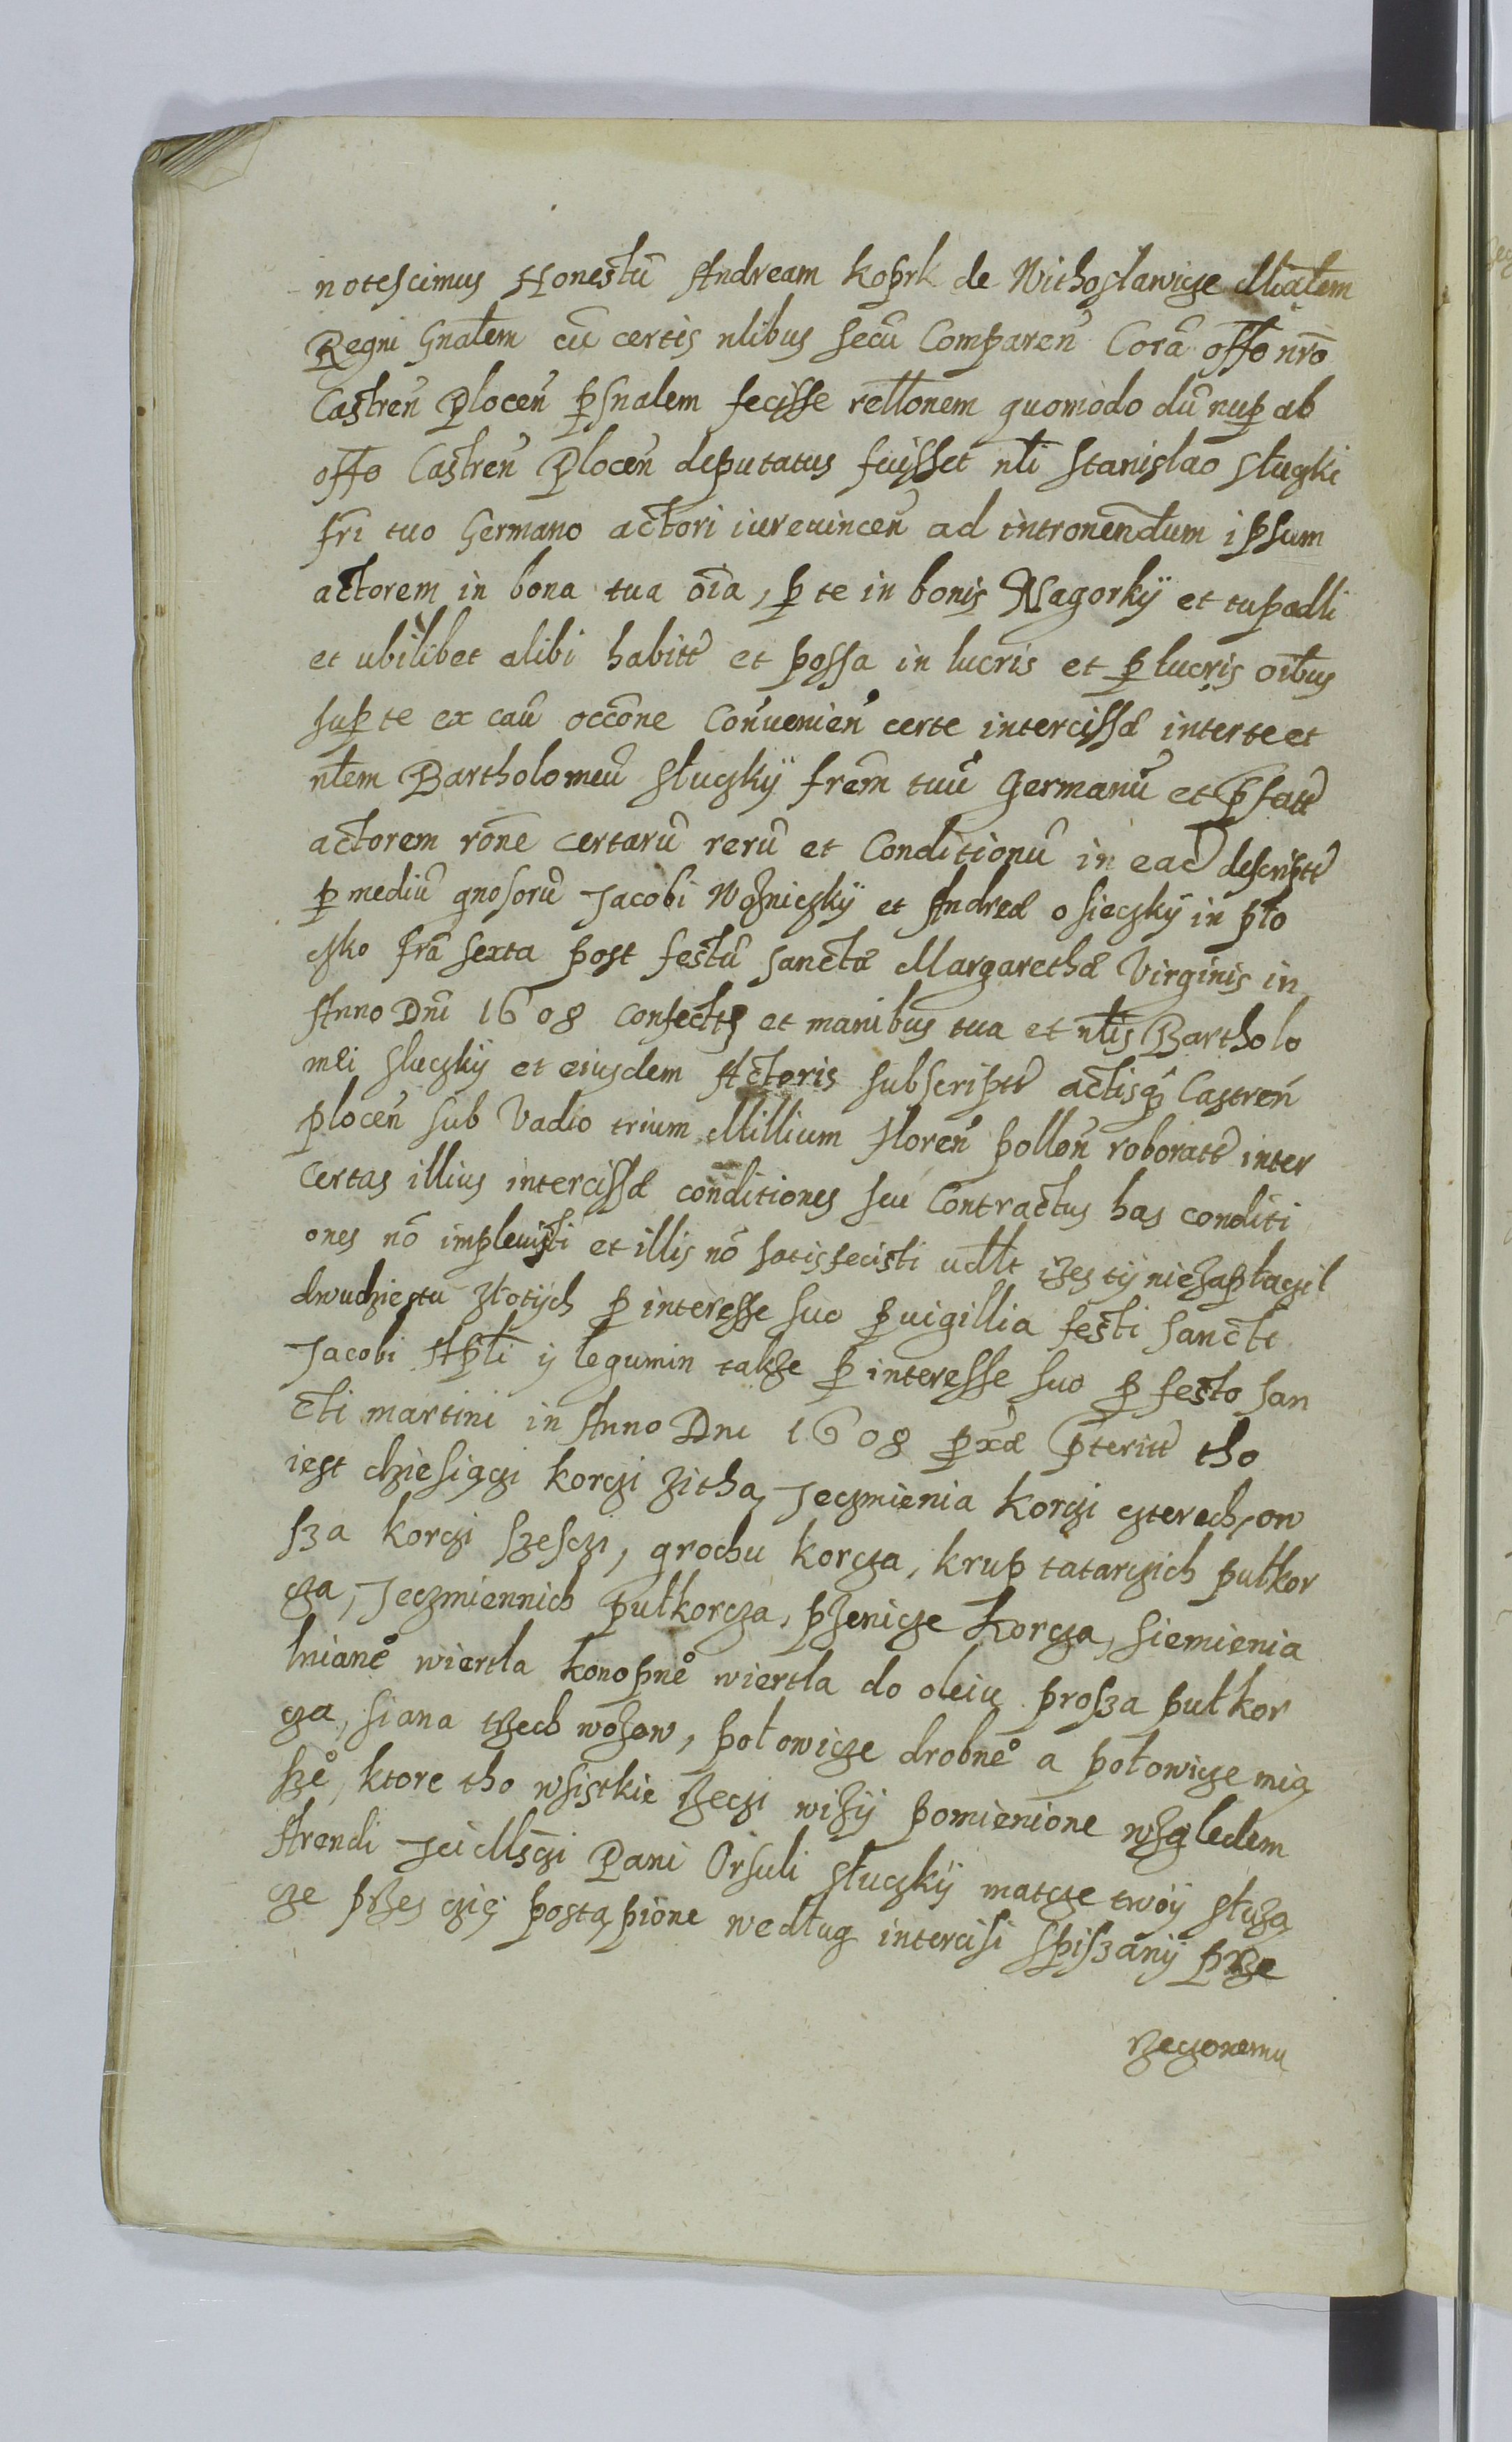 notescimus Honestū Andream koprk de Nithosławicze Mīalem
Regni Gnalem cū certis nlibus secū Comparen̄ Corā offo nr̄o
Castren̄ Plocen̄ ꝑsnalem fecisse relt̄onem quomodo dū nuꝑ ab
offo Castren̄ Plocen̄ deputatus fuisset nli Stanislao Słuczki
fr̄i tuo Germano actori iureuincen̄ ad intronen̄dum ipsum
actorem in bona tua oīa, ꝑ te in bonis Nagorkÿ et tupadli
et ubilibet alibi habitt̄ et possa in lucris et ꝑ lucris oībus
suꝑ te ex cau̅ occōne Conuenien̄ certe intercissæ inter te et
nlem Bartholomeū Słuczkÿ frēm tuū germanū et p̄fatt̄
actorem rōne certarū rerū et Conditionū in ead̄ descriptt̄
ꝑ mediū gnosorū Jacobi Wozniczkÿ et Andreæ osieczkÿ in pło
czko fr̄a sexta post festū sanctæ Margarethæ Virginis in
Anno Dn̄i 1608 confectꝭ et manibus tua et nlis Bartholo
mei słuczkÿ et eiusdem Actoris subscriptt̄ actisqꝫ Castren̄
plocen̄ sub Vadio trium Millium floren̄ pollon̄ roboratt̄ inter
certas illius intercissæ conditiones seu Contractus has conditi
ones nō impleuisti et illis nō satisfecisti udłt zes tÿ niezapłaczil
dwudziestu złotÿch ꝑ interesse suo ꝑ uigillia festi sancti
Jacobi Apl̄i ÿ legumin takze ꝑ interesse suo ꝑ festo san
cti martini in Anno Dni 1608 ꝑxæ p̄teritt̄ tho
iest dziesiączi korczi zitha, Jeczmienia korczi czterech, ow
sza korczi szesczi, grochu korcza, krup tatarczich pułkor
cza, Jeczmiennich pułkorcza, pszenicze Korcza, siemienia
lnianė wiertla konopnė wiertla do oleiu prosza pułkor
cza, siana trzech wozow, połowicze drobnė a połowicze mią
szė, ktore tho wsistkie rzeczi wizÿ pomienione wzgledem
Arendi Jei Msczi Pani Orsuli słuczkÿ matcze twoÿ słuzą
cze przes czię postąpione według intercisi spiszanÿ prze
rzeczonemu